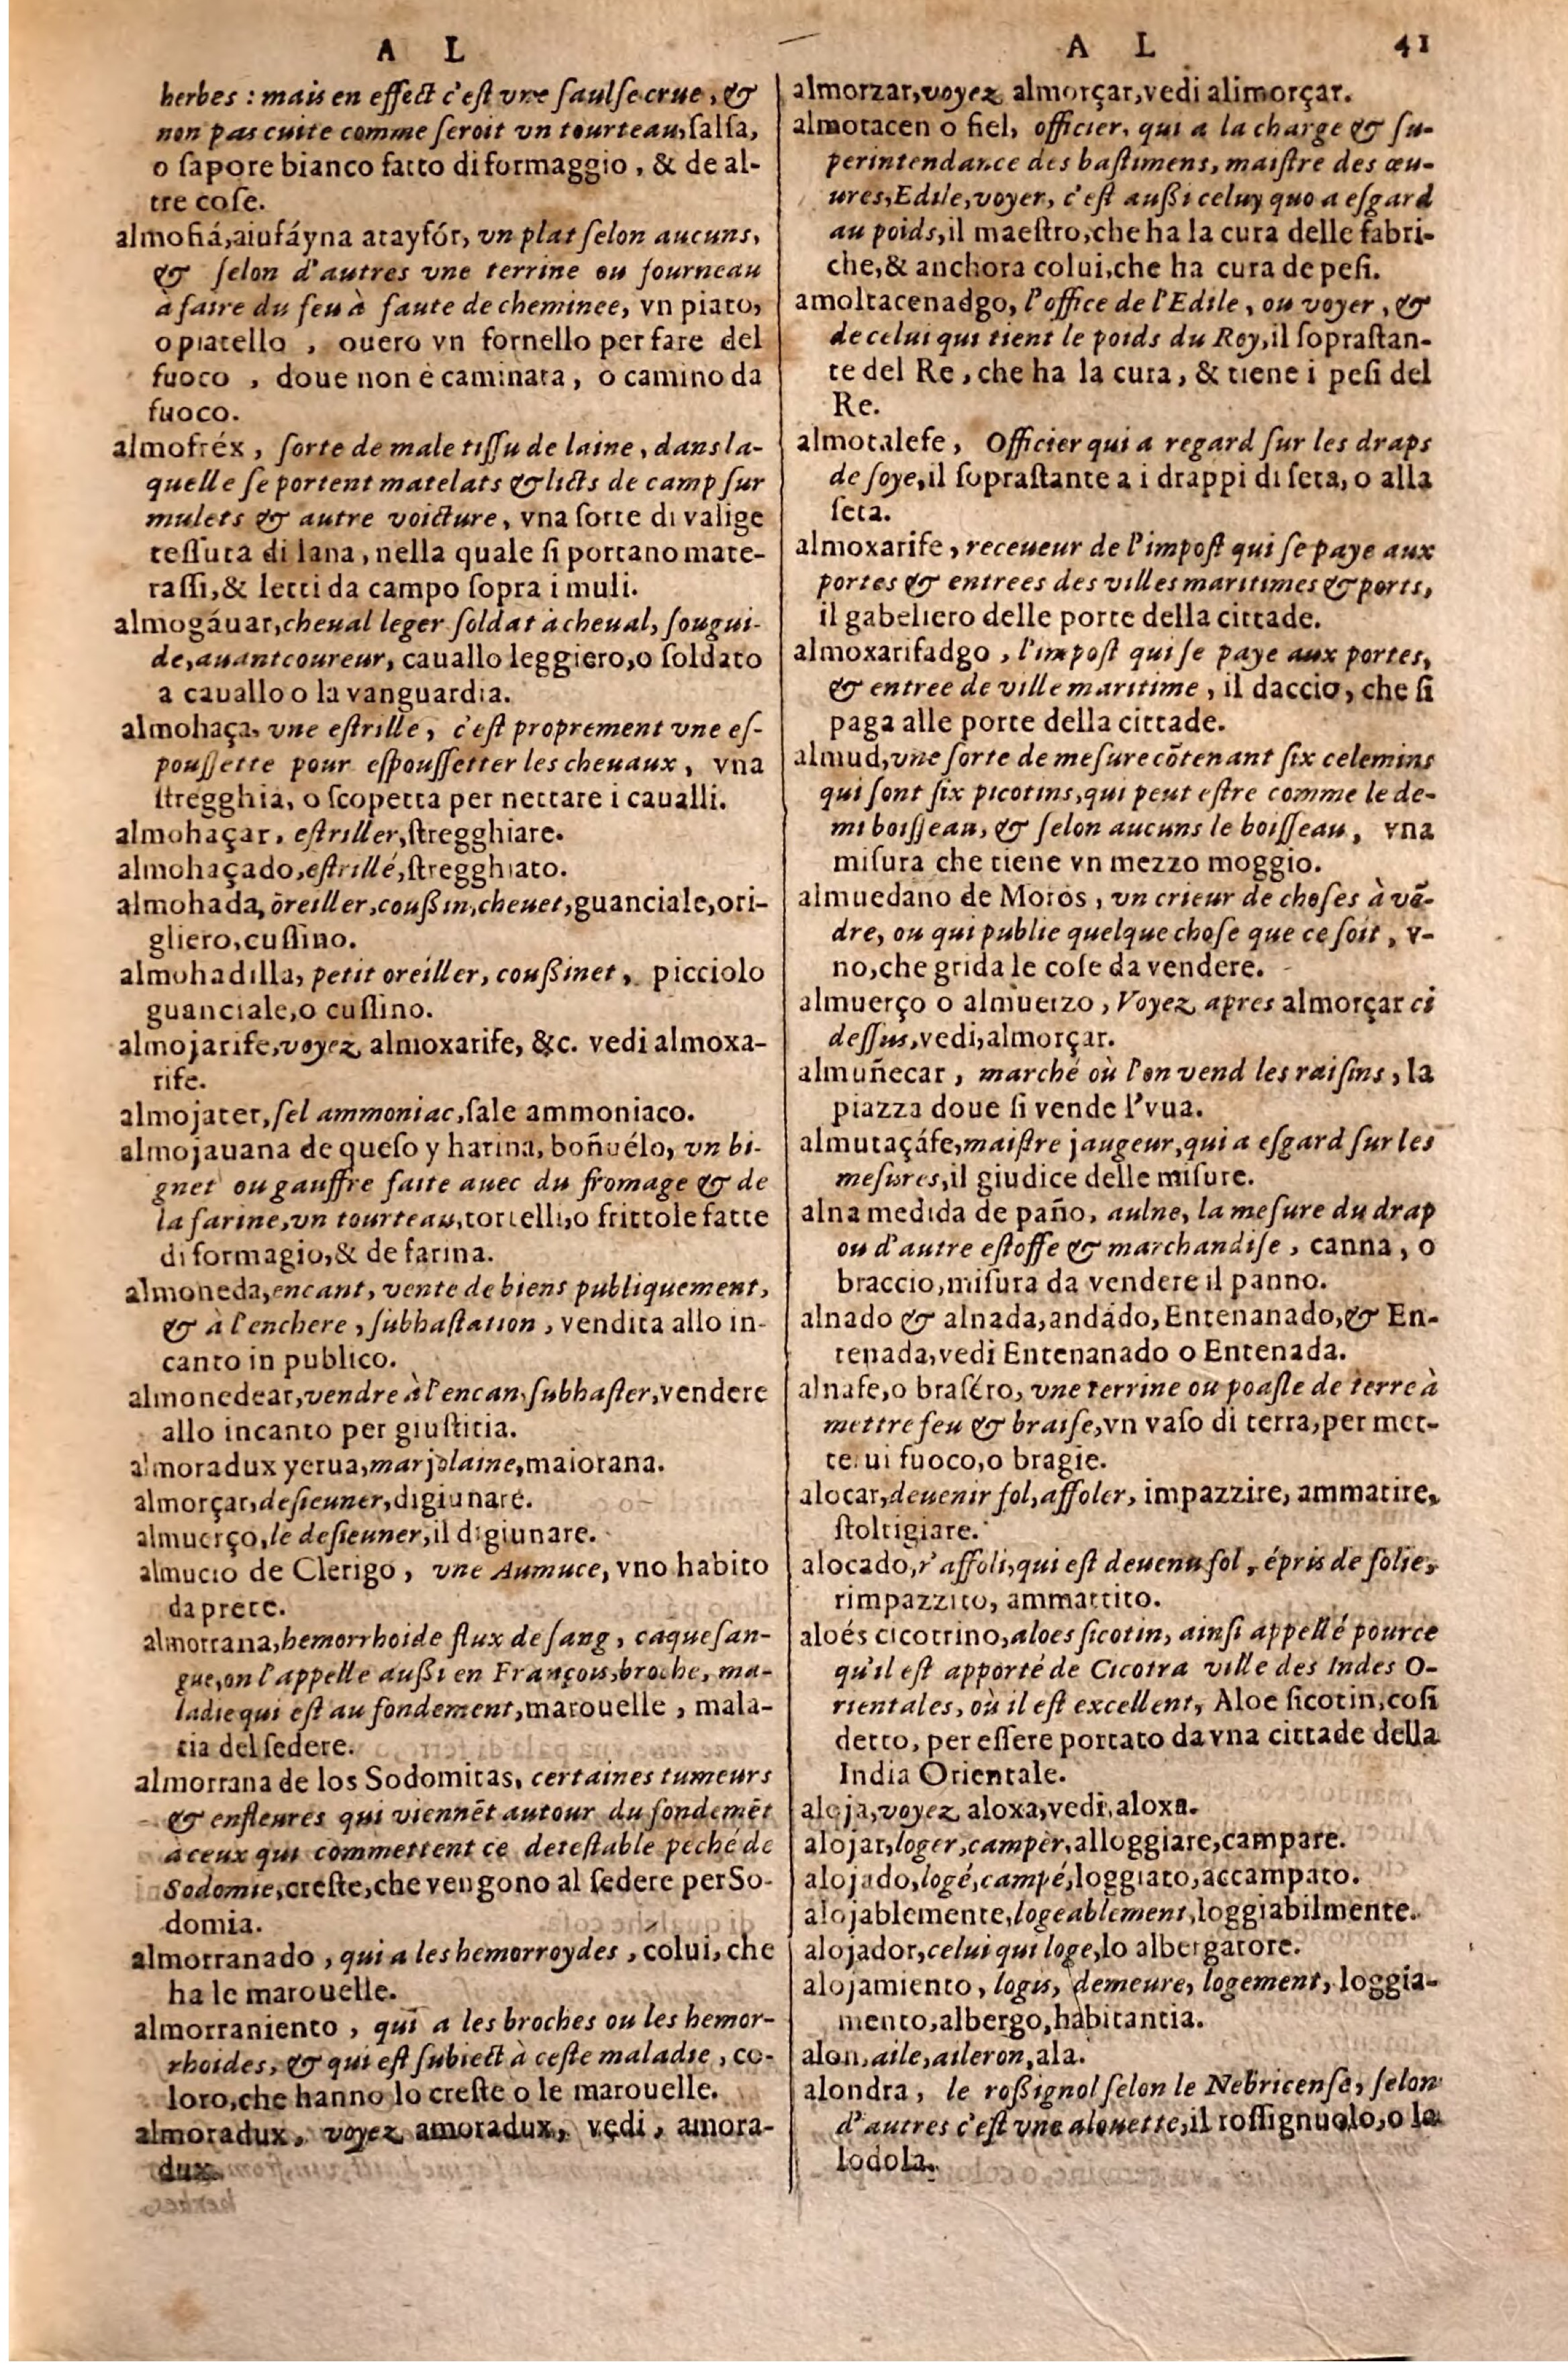 A L
herbes : mais en effect c'eſt vne ſaulſe crue, &
non pas cuite comme ſeroit vn tourteau, ſalſa,
o ſapore bianco fatto di formaggio, & de al-
tre coſe.
almofiá, aiufáyna atayfór, vn plat ſelon aucuns,
& ſelon d'autres vne terrine ou fourneau
à faire du feu à faute de cheminee, vn piato,
o piatello , ouero vn fornello per fare del
fuoco , doue non è caminata, o camino da
fuoco.
almofréx , ſorte de male tiſſu de laine, dans la-
quelle ſe portent matelats & licts de camp ſur
mulets & autre voicture, vna ſorte di valige
teſſuta di lana, nella quale ſi portano mate-
raſſi, & letti da campo ſopra i muli.
almogáuar, cheual leger ſoldat à cheual, ſougui-
de, auantcoureur, cauallo leggiero, o ſoldato
a cauallo o la vanguardia.
almohaça, vne eſtrille, c'eſt proprement vne eſ-
pouſſette pour eſpouſſetter les cheuaux, vna
ſtregghia, o ſcopetta per nettare i caualli.
almohaçar, eſtriller, ſtregghiare.
almohaçado, eſtrillé, ſtregghiato.
almohada, oreiller, coußin, cheuet, guanciale, ori-
gliero, cuſſino.
almohadilla, petit oreiller, coußinet, picciolo
guanciale, o cuſſino.
almojarife, voyez almoxarife, &c. vedi almoxa-
rife.
almojater, ſel ammoniac, ſale ammoniaco.
almojauana de queſo y harina, boñuélo, vn bi-
gnet ou gauffre faite auec du fromage & de
la farine, vn tourteau, tortelli, o frittole fatte
di formagio, & de farina.
almoneda, encant, vente de biens publiquement,
& à l'enchere, ſubhaſtation, vendita allo in-
canto in publico.
almonedear, vendre à l'encan, ſubhaſter, vendere
allo incanto per giuſtitia.
almoradux yerua, marjolaine, maiorana.
almorçar, deſieuner, digiunare.
almuerço, le deſieuner, il digiunare.
almucio de Clerigo, vne Aumuce, vno habito
da prete.
almorrana, hemorrhoide flux de ſang, caqueſan-
gue, on l'appelle außi en François, broche, ma-
ladie qui eſt au fondement, marouelle, mala-
tia del ſedere.
almorrana de los Sodomitas, certaines tumeurs
& enfleures qui viennēt autour du fondemēt
à ceux qui commettent ce deteſtable peché de
Sodomie, creſte, che vengono al ſedere per So-
domia.
almorranado, qui a les hemorroydes, colui, che
ha le marouelle.
almorraniento, qui a les broches ou les hemor-
rhoides, & qui eſt ſubiect à ceſte maladie, co-
loro, che hanno lo creſte o le marouelle.
almoradux, voyez amoradux, vedi, amora-
dux.
A L 41
almorzar, voyez almorçar, vedi alimorçar.
almotacen o fiel, officier, qui a la charge & ſu-
perintendance des baſtimens, maiſtre des œu-
ures, Edile, voyer, c'eſt außi celuy quo a eſgard
au poids, il maeſtro, che ha la cura delle fabri-
che, & anchora colui, che ha cura de peſi.
amoltacenadgo, l'office de l'Edile, ou voyer, &
de celui qui tient le poids du Roy, il ſopraſtan-
te del Re, che ha la cura, & tiene i peſi del
Re.
almotalefe, Officier qui a regard ſur les draps
de ſoye, il ſopraſtante a i drappi di ſeta, o alla
ſeta.
almoxarife, receueur de l'impoſt qui ſe paye aux
portes & entrees des villes maritimes & ports,
il gabeliero delle porte della cittade.
almoxarifadgo, l'impoſt qui ſe paye aux portes,
& entree de ville maritime, il daccio, che ſi
paga alle porte della cittade.
almud, vne ſorte de meſure cõtenant ſix celemins
qui ſont ſix picotins, qui peut eſtre comme le de-
mi boiſſeau, & ſelon aucuns le boiſſeau, vna
miſura che tiene vn mezzo moggio.
almuedano de Moros, vn crieur de choſes à vē-
dre, ou qui publie quelque choſe que ce ſoit, v-
no, che grida le coſe da vendere.
almuerço o almuerzo, Voyez apres almorçar ci
deſſus, vedi, almorçar.
almuñecar, marché où l'on vend les raiſins, la
piazza doue ſi vende l'vua.
almutaçáfe, maiſtre jaugeur, qui a eſgard ſur les
meſures, il giudice delle miſure.
alna medida de paño, aulne, la meſure du drap
ou d'autre eſtoffe & marchandiſe, canna, o
braccio, miſura da vendere il panno.
alnado & alnada, andádo, Entenanado, & En-
tenada, vedi Entenanado o Entenada.
alnafe, o braſéro, vne terrine ou poaſle de terre à
mettre feu & braiſe, vn vaſo di terra, per met-
te ui fuoco, o bragie.
alocar, deuenir fol, affoler, impazzire, ammatire,
ſtoltigiare.
alocado, r'affoli, qui eſt deuenu fol, épris de folie,
rimpazzito, ammattito.
aloés cicotrino, aloes ſicotin, ainſi appellé pource
qu'il eſt apporté de Cicotra ville des Indes O-
rientales, où il eſt excellent, Aloe ſicotin, coſi
detto, per eſſere portato da vna cittade della
India Orientale.
aloja, voyez aloxa, vedi, aloxa.
alojar, loger, camper, alloggiare, campare.
alojado, logé, campé, loggiato, accampato.
alojablemente, logeablement, loggiabilmente.
alojador, celui qui loge, lo albergatore.
alojamiento, logis, demeure, logement, loggia-
mento, albergo, habitantia.
alon, aile, aileron, ala.
alondra, le roßignol ſelon le Nebricenſe, ſelon
d'autres c'eſt vne alouette, il roſſignuolo, o la
lodola.